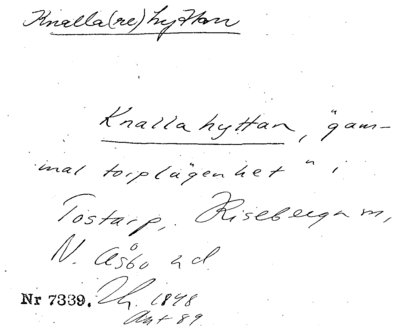 Knalla(re)hyttan
Knallahyttan, "gam-
mal torplägenhet" i
Tostarp, Riseberga sn,
N. Åsbo hd.
Nr 7339. 1898